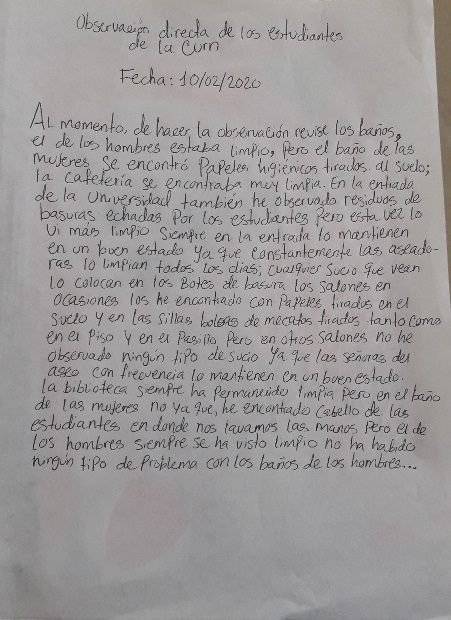 Observación directa de los estudiantes
de la Curn
Fecha: 10/02/2020
AL momento, de hacer la observación revise los baños,
el de los hombres estaba limpio, pero el baño de las
mujeres se encontró Papeles higienicos tirados al suelo;
la cafetería se encontraba muy limpia. En la entrada
de la Universidad también he observado residuos de
basuras echadas Por los estudiantes Pero esta vez lo
vi más limpio Siempre en la entrada lo mantienen
en un buen estado ya que constantemente las aseado-
ras lo limpian todos los dias; cualquier sucio que vean
lo colocan en los Botes de basura los salones en
ocasiones los he encontrado con Papeles tirados en el
suelo y en las sillas bolsas de mecatos tirados tanto como
en el Piso y en el Pasillo Pero en otros salones no he
observado ningún tipo de sucio ya que las señoras del
aseo con frecuencia lo mantienen en un buen estado.
la biblioteca siempre ha permanecido limpia pero en el baño
de las mujeres no ya que, he encontrado cabello de las
estudiantes en donde nos lavamos las manos. Pero el de
los hombres siempre se ha visto limpio no ha habido
ningún tipo de problema con los baños de los hombres...